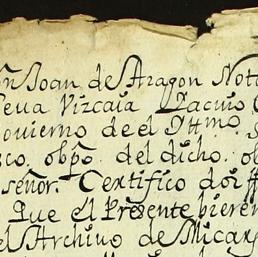 Joan de Aragon Nota
Veua Vizcaia
Govierno de el Yttmo
obpo del dicho
señor. Certifico doi ff
Que el Presente bieren
el Archivo de Mi car